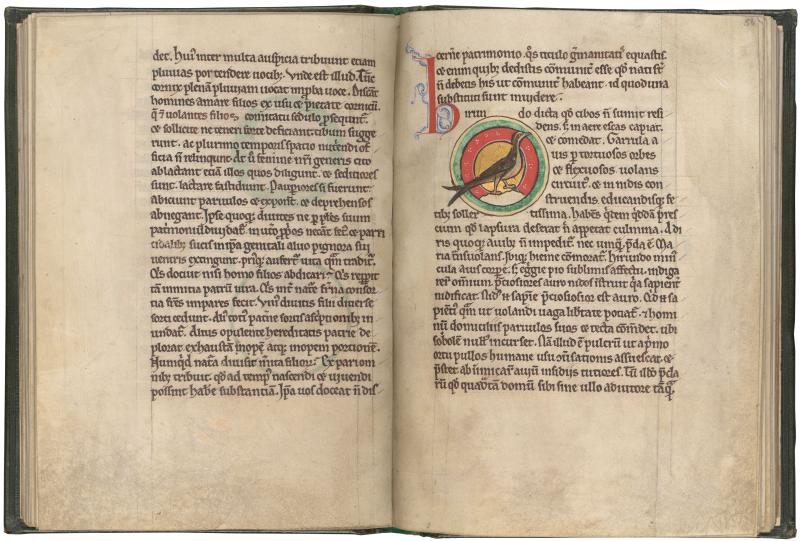 det. Huiꝰ inter multa auspicia tribuunt etiam
pluuias portendere uocibꝫ. Vnde est illud. Tūc
cornix plenā pluuiam uocat inproba uoce. Discāt
homines amare filios ex usu et pietate cornicū.
q̄ uolantes filios comitatu sedulo prosequnt̄.
et sollicite ne teneri forte deficiant cibum sugge
runt. ac plurimo temporis spatio nutriendi of
ficia n̄ relinquunt. At ū femine nr̄i generis cito
ablactant etiā illos quos diligunt. et seditiores
sunt. lactare fastidiunt. Pauperiores si fuerunt
abiciunt paruulos et expont̄. et deprehensos
abnegant. Ipse quoqꝫ diuites ne ꝑ ptes suum
patⁱmoniū diuidat̄. in utō ꝓpos necant fetꝰ. et parri
cidalibꝫ sucis in ipsa genitali aluo pignora sui
uentris extingunt. priꝰqꝫ aufert̄ uita qᵃm tradit̄.
Qis docuit nisi homo filios abdicari? Qis reppit
tā inmitia patrū iura. Qis int̄ nature frnā consor
tia frēs impares fecit. Vniꝰ diuitis filii diuerse
sorti cedunt. Aliꝰ toti patne sortis asceptionibꝫ in
undat̄. Aliꝰ opulente hereditatis patrie de
plorat exhaustā inopem atqꝫ inopem portionem.
Nunqⁱd natā diuisit mīta filioꝝ? Ex pari om
nibꝫ tribuit. qᵒd ad tempꝰ nascendi et uiuendi
possint habē substantiā. Ipā uos doceat n̄ dis
56
cerne patrimonio. qᵒs titulo gmanitatiˢ equastis.
et enim quibꝫ dedistis cōmunit̄ esse qᵒd nati sr̄t
n̄ debetis hiis ut cōmunit̄ habeant. id quod una
substituti sunt inuidere.
Hirundo dicta qᵒd cibos n̄ sumit resi
dens. sꝫ in aere escas capiat.
et comedat. Garrula a
uis ꝑ tortuosos orbes
et flexuosos uolans
circuitꝰ. et in nidis con
struendis educandisqꝫ fe
tibꝫ sollertissima. habens
cium qᵒd lapsura deserat n̄ appetat culmina. A di
ris quoqꝫ auibꝫ n̄ impedit̄. nec umqᵃ p̄da ē. Ma
ria tⁿsuolans. ibiqꝫ hieme cōmorat̄. hirundo minus
cula auis corꝑe. sꝫ egᵉgie pio sublimis affectu. indiga
reꝝ omnium. p̄ciosiores auro nidos īstruit qᵃ sapient̄
nidificat. Nidꝰ ē sapiē p̄ciosiosior est auro. Qd ē sa
pientiꝰ qᵃm ut uolandi uaga libtate potiat̄. et homi
nū domiciliis paruulos suos et tecta cōmdet. ubi
sobolem nullꝰ incursēt. Nā illud ē pulcrū ut a pⁱmo
ortu pullos humane usu cōuersationis assuescat. et
p̄stet ab inimicaꝝ auiū insidiis tutiores. Tū illᵈ p̄cla
rū qᵒ quadā domū sibi sine ullo adiutore tāqᵃ